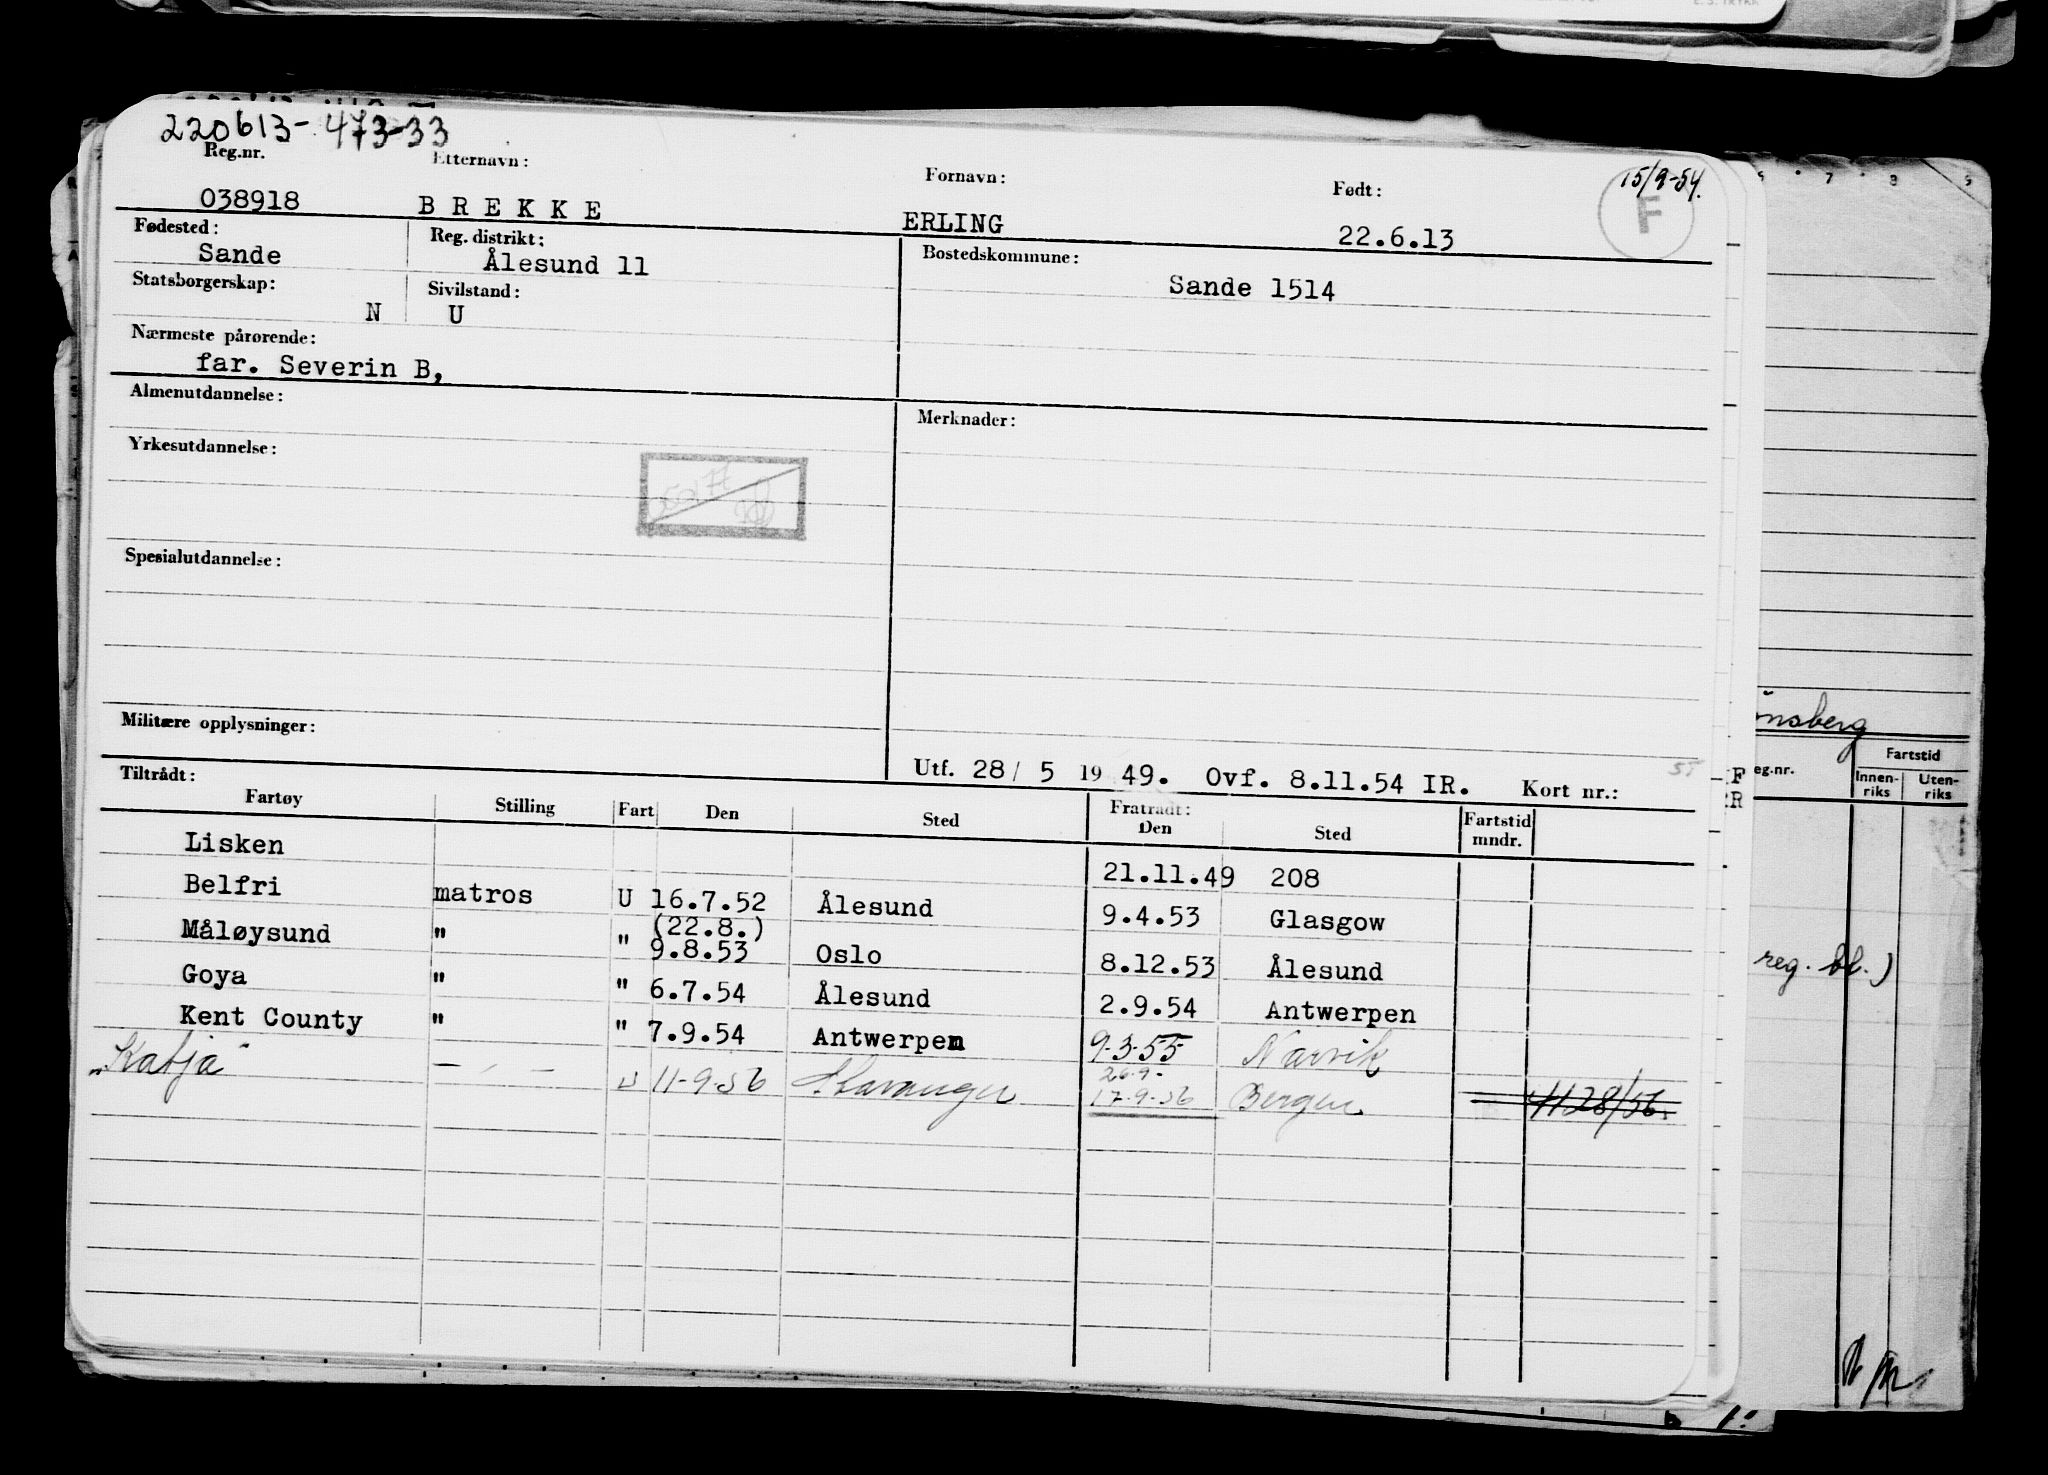 220613-473-33
Reg.nr. Etternavn: Fornavn: Født: 15/9-54.
038918 BREKKE ERLING 22.6.13 F
Fødested: Reg. distrikt: Bostedskommune:
Sande Ålesund 11 Sande 1514
Statsborgerskap: Sivilstand:
N U
Nærmeste pårørende:
far. Severin B,
Almenutdannelse: Merknader:
Yrkesutdannelse:
Spesialutdannelse:
Militære opplysninger:
Utf. 28/ 5 19 49. Ovf. 8.11.54 IR. Kort nr.:
Tiltrådt: Fratrådt:
Fartøy Stilling Fart Den Sted Den Sted Fartstid mndr.
Lisken 21.11.49 208
Belfri matros U 16.7.52 Ålesund 9.4.53 Glasgow
(22.8.)
Måløysund " " 9.8.53 Oslo 8.12.53 Ålesund
Goya " " 6.7.54 Ålesund 2.9.54 Antwerpen
Kent County " " 7.9.54 Antwerpen 9-3-55 Narvik
26.9-
„Katja" — „ — U 11-9-56 Stavanger 17-9-56 Bergen 1128/56.
ønsberg
eg.nr. Fartstid
Innen-riks Uten-riks
reg. bl.)